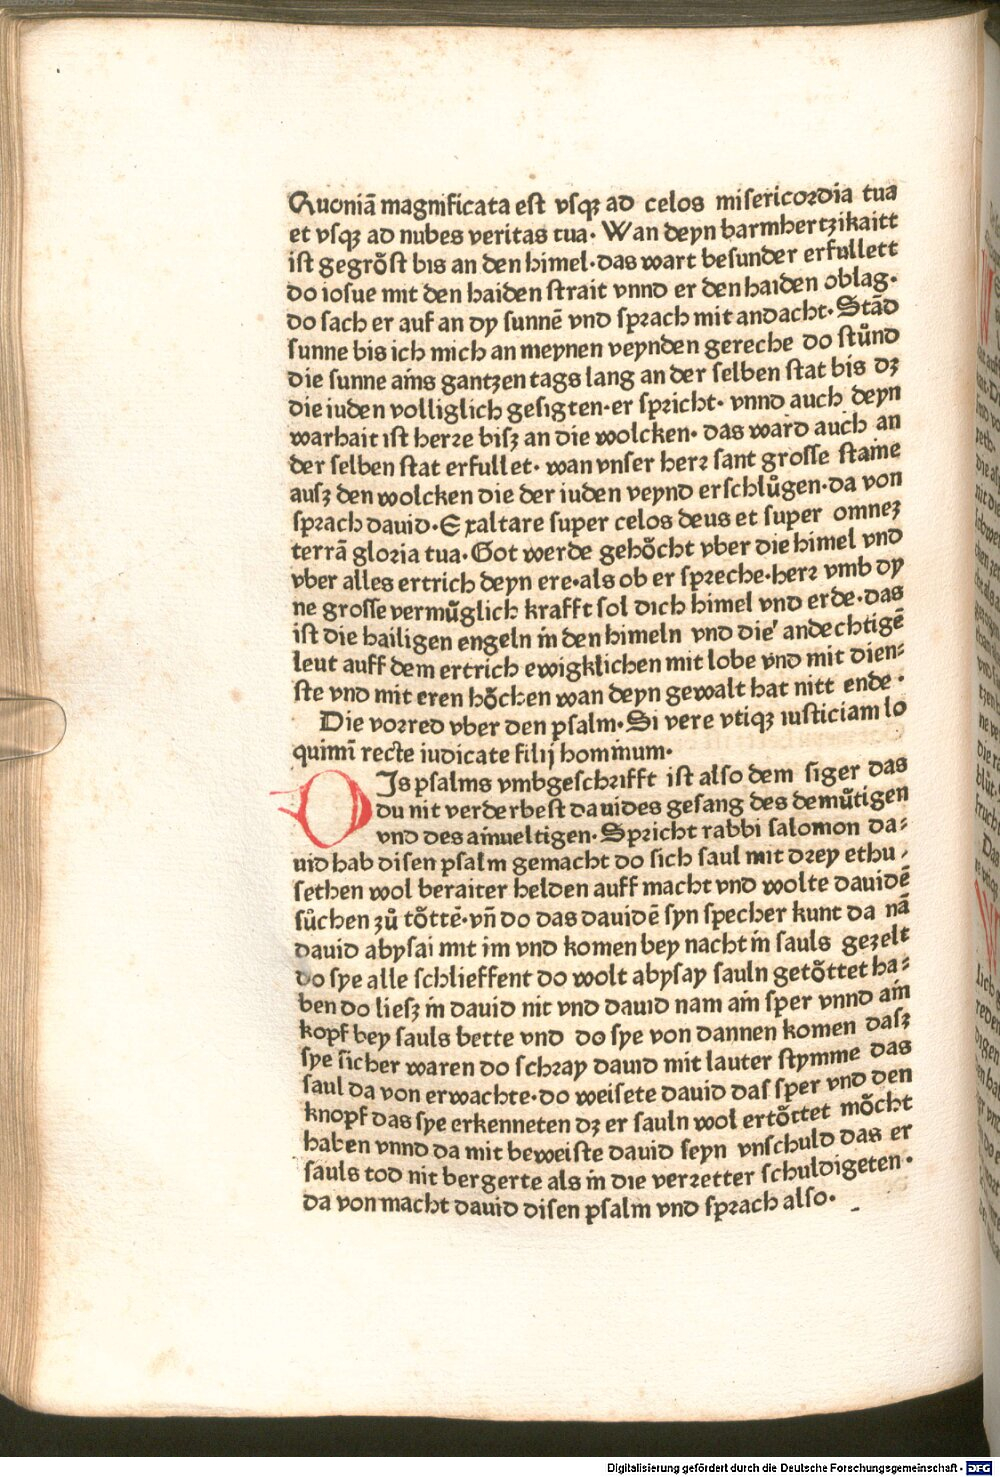 Quoniā magnificata est vsqꝫ ad celos misericordia tua
et vsqꝫ ad nubes veritas tua· Wan deyn barmhertzikaitt
ist gegrőst bis an den himel·das wart besunder erfullett
do iosue mit den haiden strait vnnd er den haiden oblag·
do sach er auf an dy sunnē vnd sprach mit andacht·Stād
sunne bis ich mich an meynen veynden gereche do stůnd
die sunne ains gantzen tags lang an der selben stat bis dz
die iuden volliglich gesigten·er spricht· vnnd auch deyn
warhait ist herre bisz an die wolcken· das ward auch an
der selben stat erfullet· wan vnser herr sant grosse staine
ausz den wolcken die der iuden veynd erschlůgen·da von
sprach dauid·Exaltare super celos deus et super omnez
terrā gloria tua·Got werde gehőcht vber die himel vnd
vber alles ertrich deyn ere·als ob er spreche·herr vmb dy
ne grosse verműglich krafft sol dich himel vnd erde·das
ist die hailigen engeln in den himeln vnd die andechtigē
leut auff dem ertrich ewigklichen mit lobe vnd mit dien⸗
ste vnd mit eren hőchen wan deyn gewalt hat nitt ende·
Die vorred vber den psalm·Si vere vtiqꝫ iusticiam lo
quimī recte iudicate filij hominum·
DIs psalms vmbgeschrifft ist also dem siger das
du nit verderbest dauides gesang des deműtigen
vnd des ainueltigen·Spricht rabbi salomon da⸗
uid hab disen psalm gemacht do sich saul mit drey ethu
sethen wol beraiter helden auff macht vnd wolte dauidē
sůchen zů tőttē·vñ do das dauidē syn specher kunt da nā
dauid abysai mit im vnd komen bey nacht in sauls gezelt
do sye alle schlieffent do wolt abysay sauln getőttet ha⸗
ben do liesz in dauid nit vnd dauid nam ain sper vnnd ain
kopf bey sauls bette vnd do sye von dannen komen dasz
sye sicher waren do schray dauid mit lauter stymme das
saul da von erwachte·do weisete dauid das sper vnd den
knopf das sye erkenneten dz er sauln wol ertőttet mőcht
haben vnnd da mit beweiste dauid seyn vnschuld das er
sauls tod nit bergerte als in die verretter schuldigeten·
da von macht dauid disen psalm vnd sprach also·
Digitalisierung gefördert durch die Deutsche Forschungsgemeinschaft · DFG